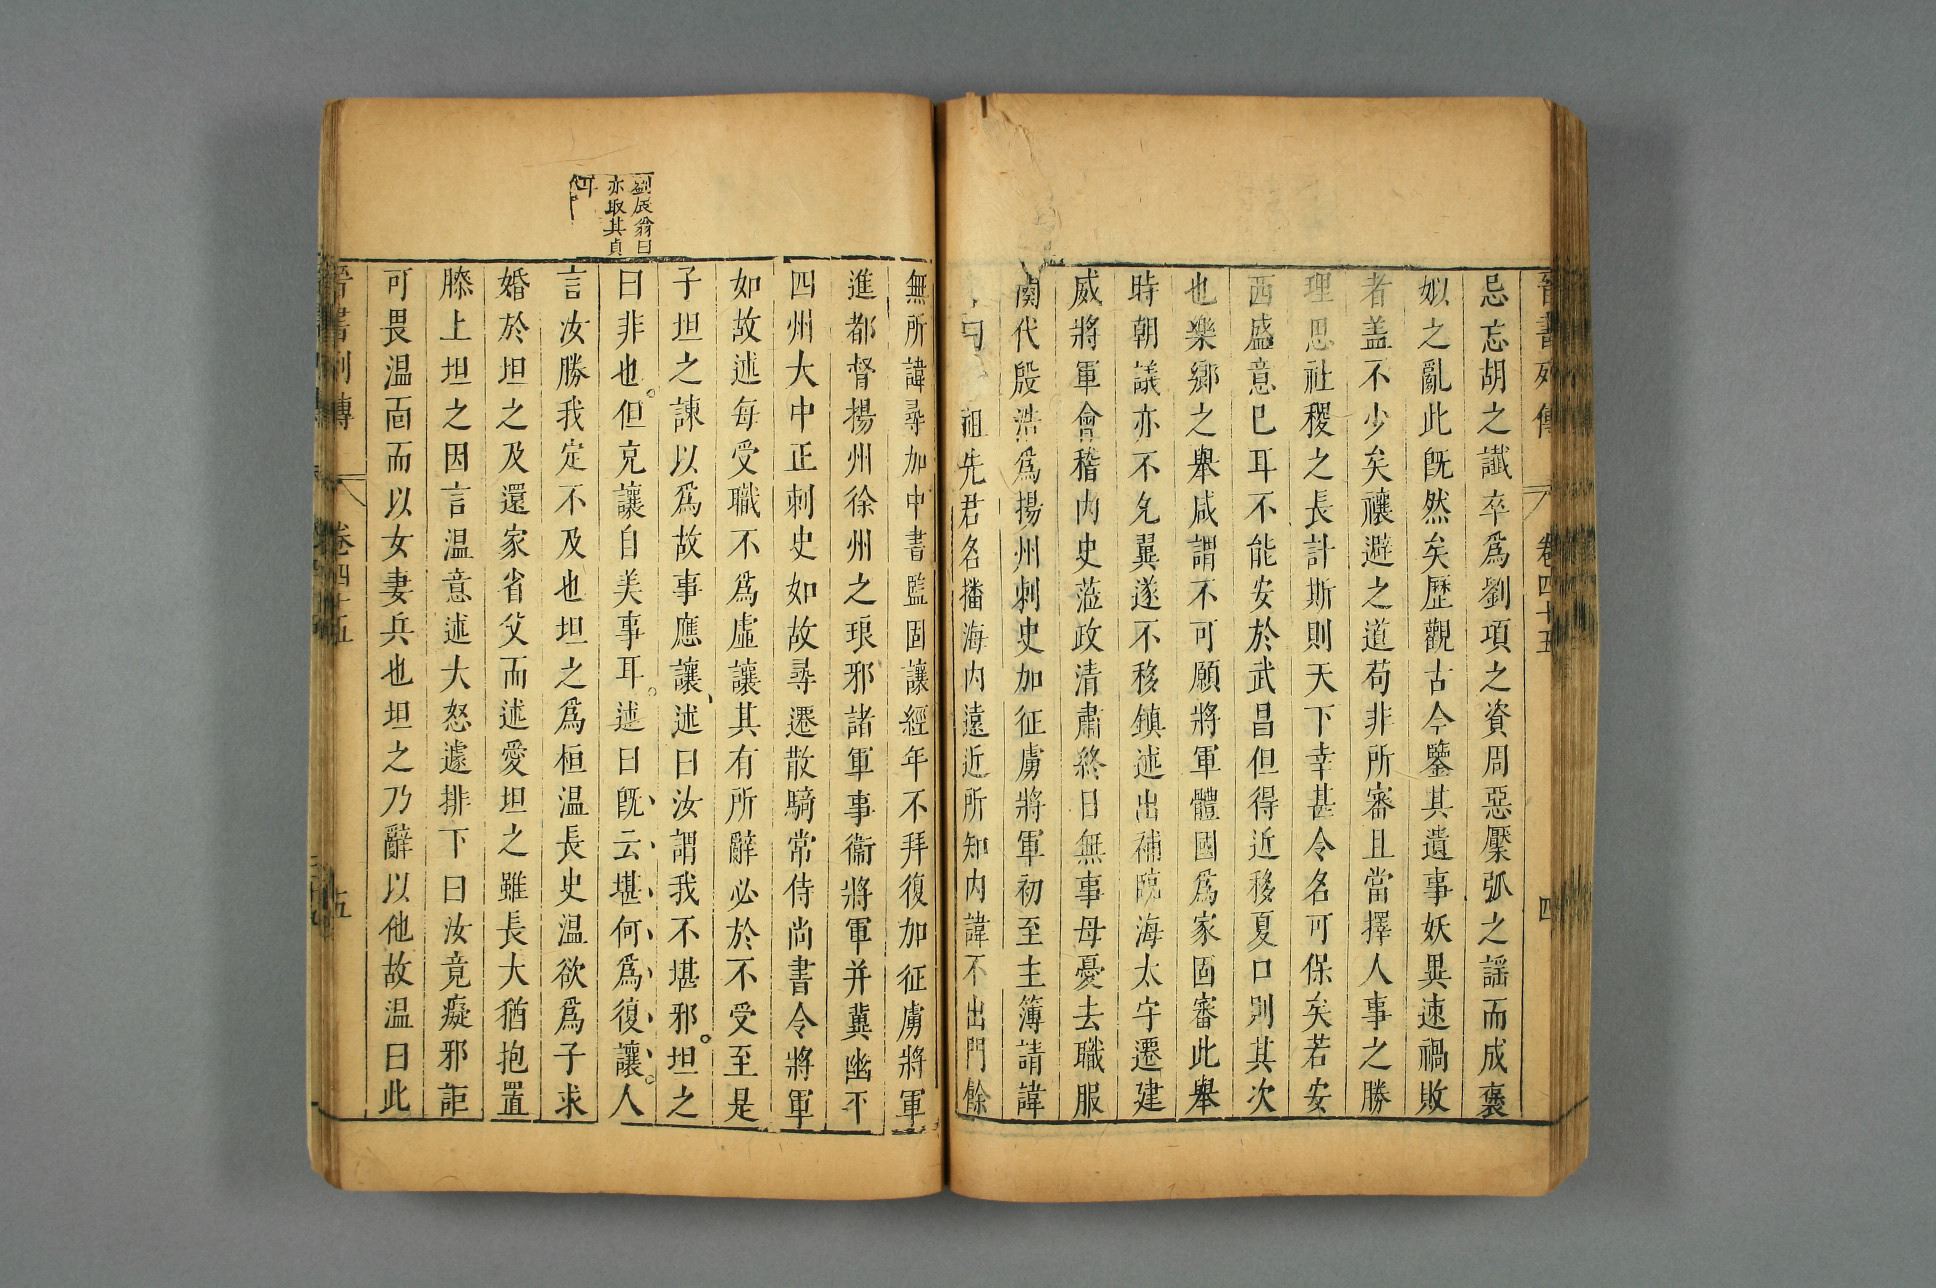 晉書列傳 卷四十五 四
忌忘胡之讖卒爲劉項之資周惡檿弧之謡而成褒
姒之亂此旣然矣歷觀古今鑒其遺事妖異速禍敗
者盖不少矣禳避之道苟非所審且當擇人事之勝
理思社稷之長計斯則天下幸甚令名可保矣若安
西盛意已耳不能安於武昌但得近移夏口則其次
也樂鄉之舉咸謂不可願將軍體國爲家固審此舉
時朝議亦不允翼遂不移鎮述出補臨海太守遷建
威將軍會稽内史蒞政清肅終日無事母憂去職服
闋代殷浩爲揚州刺史加征虜將軍初至主簿請諱
曰 祖先君名播海内遠近所知内諱不出門餘
無所諱尋加中書監固讓經年不拜復加征虜將軍
進都督揚州徐州之琅邪諸軍事衞將軍并冀幽平
四州大中正刺史如故尋遷散騎常侍尚書令將軍
如故述每受職不爲虛讓其有所辭必於不受至是
子坦之諫以爲故事應讓、述曰汝謂我不堪邪。坦之
曰非也。但克讓自美事耳。述曰旣云堪何爲復讓。人
言汝勝我定不及也坦之爲桓温長史温欲爲子求
婚於坦之及還家省父而述愛坦之雖長大猶抱置
膝上坦之因言温意述大怒遽排下曰汝竟癡邪詎
可畏温面而以女妻兵也坦之乃辭以他故温曰此
晉書列傳 卷四十五 五
劉辰翁曰
亦取其眞
耳